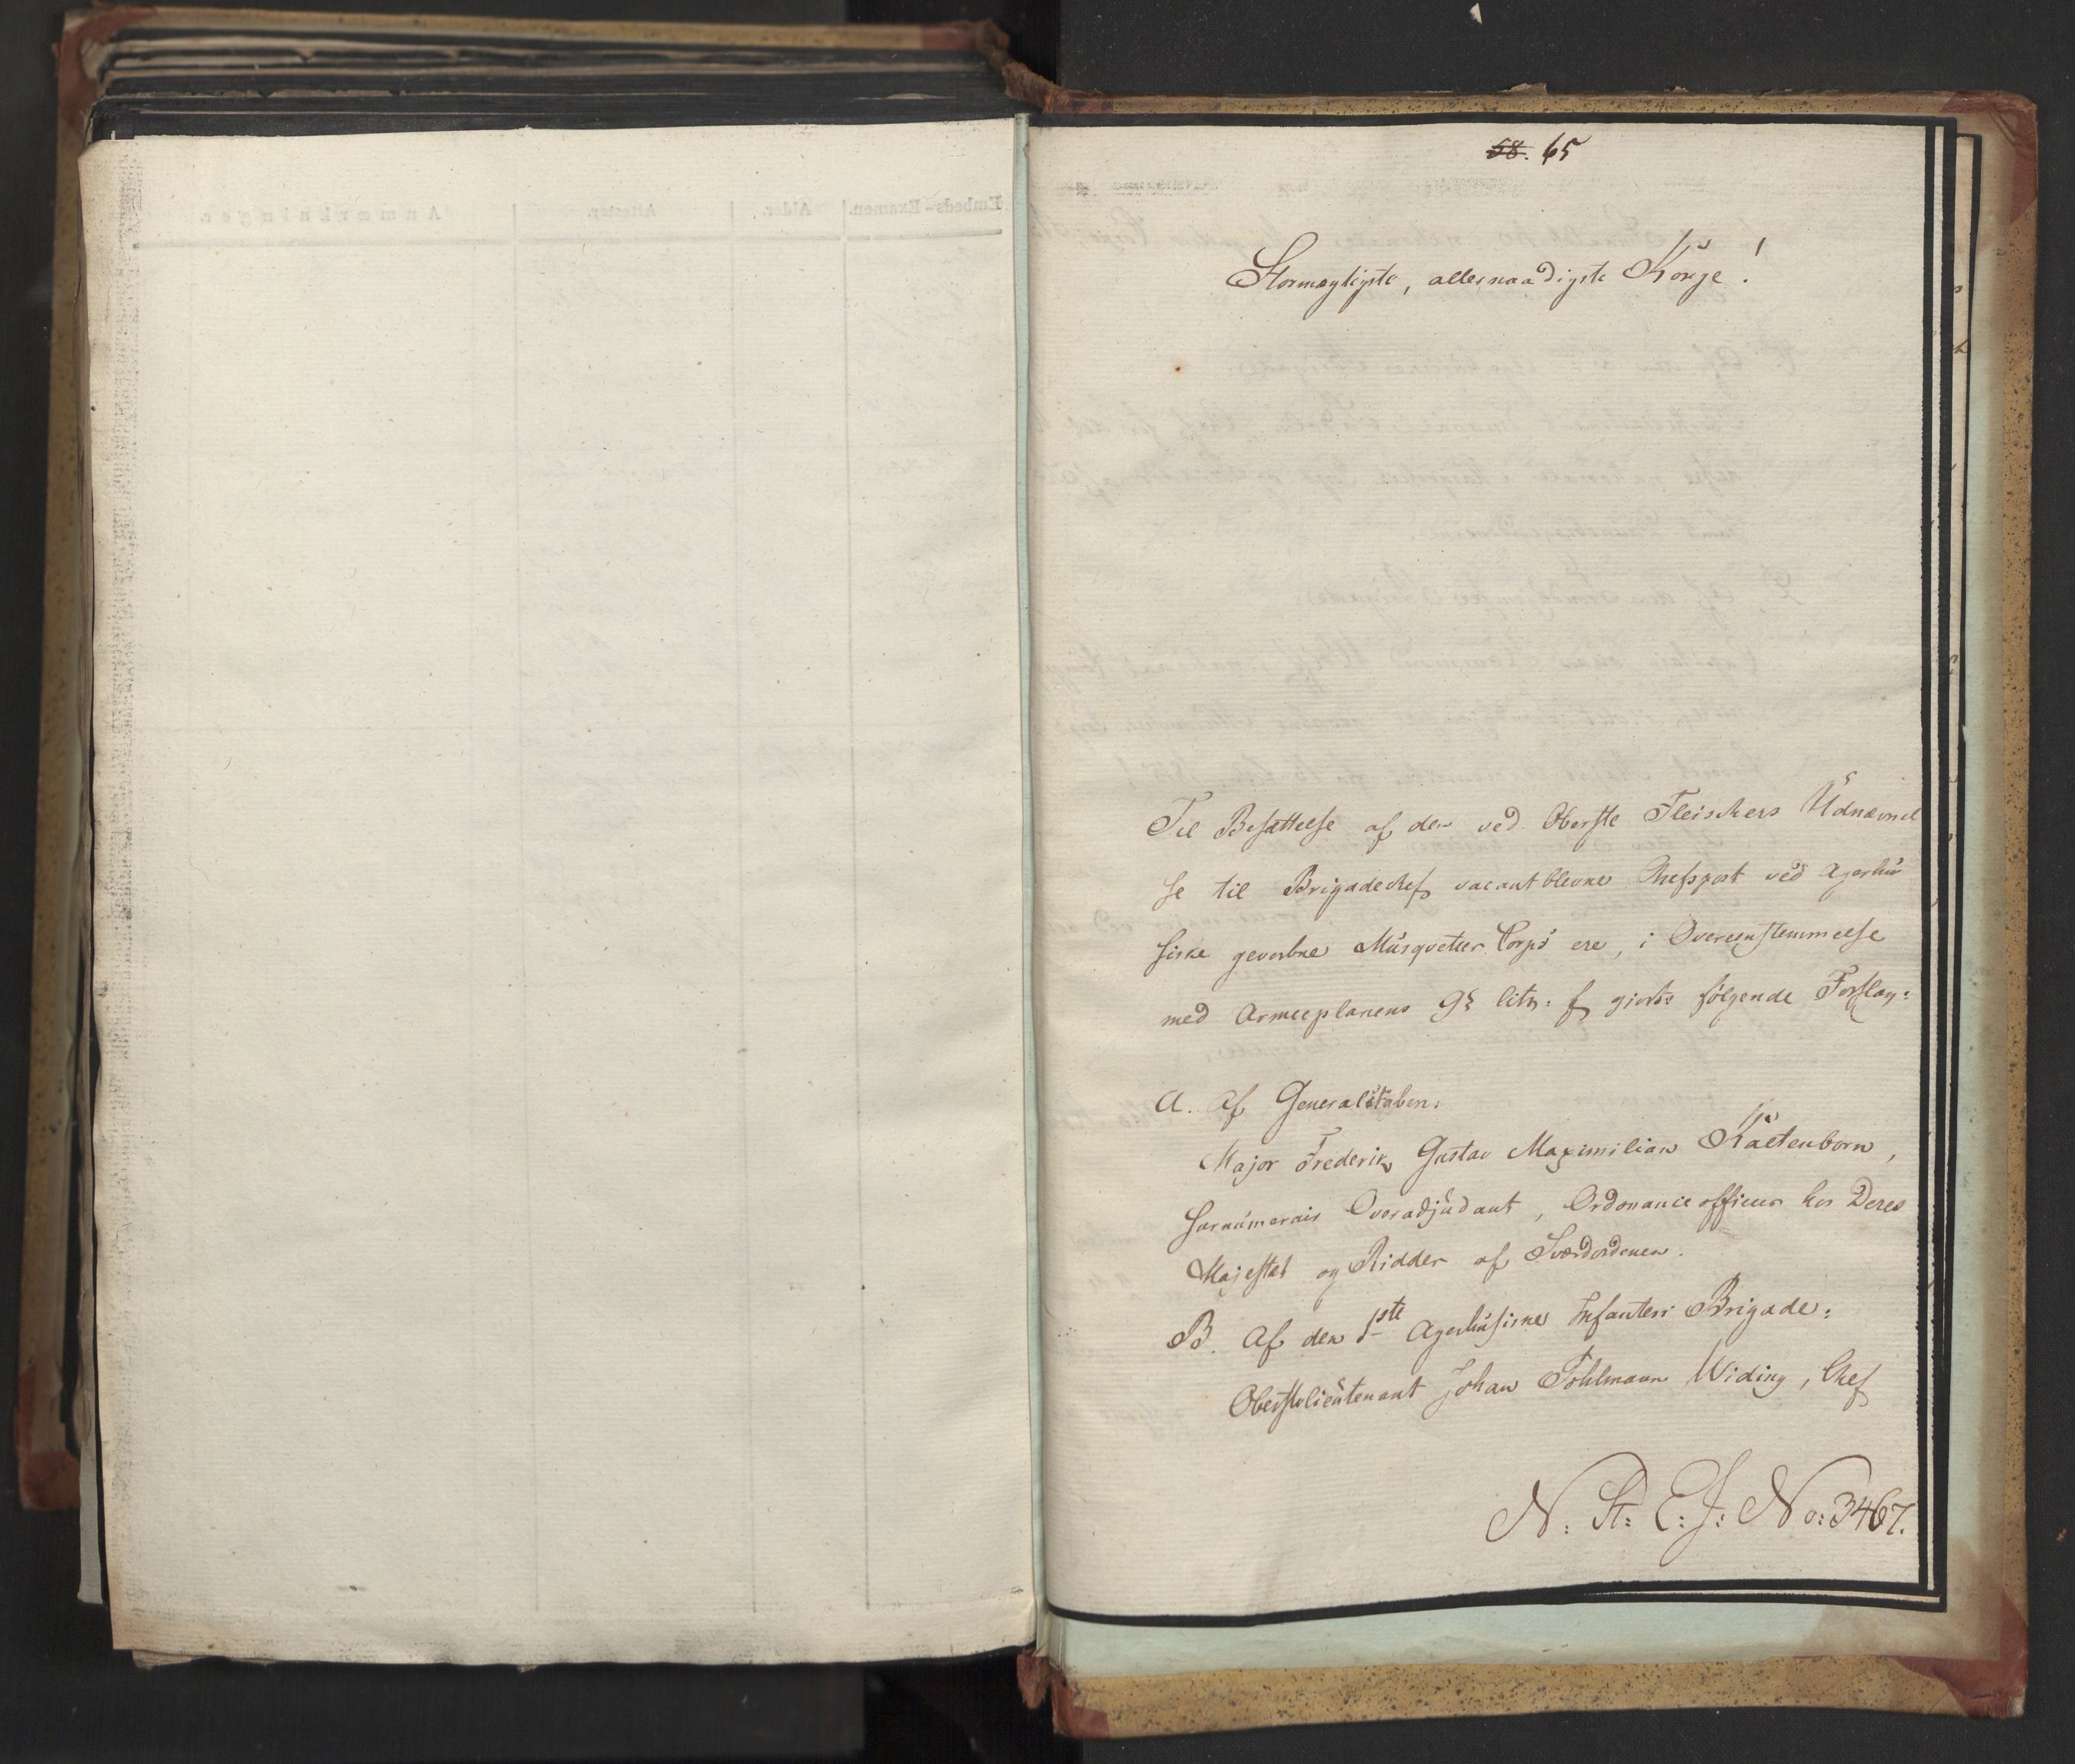 58. 65
Stormægtigste, allernaadigste Konge!
Til Besættelse af den ved Oberste Fleischers Udnævnel
se til Brigadechef vacant blevne Chefspost ved Agerhuu
siske gevorbne Musqueteer Corps ere, i Overeensstemmelse
med Armeeplanens 9§ litr: f gjorte følgende Forslag:
A. Af Generalstaben:
Major Frederik Gustav Maximilian Kaltenborn,
surnumerair Overadjudant, Ordonance officeer hos Deres
Majestæt og Ridder af Sværdordenen.
B. Af den 1ste Agerhusiske Infanteri Brigade:
Oberstlieutenant Johan Pohlmann Widing, Chef
N: St: E: J: No: 3467.